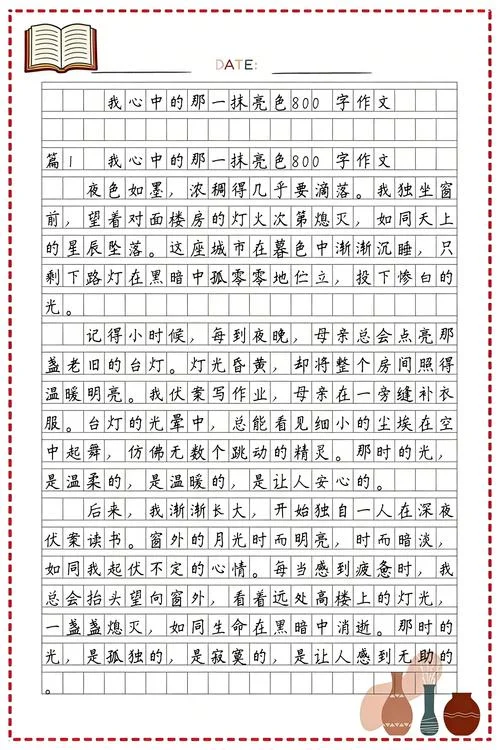 DATE:
我心中的那一抹亮色800 字作文
篇1 我心中的那一抹亮色800 字作文
夜色如墨，浓稠得几乎要滴落。我独坐窗
前，望着对面楼房的灯火次第熄灭，如同天上
的星辰坠落。这座城市在暮色中渐渐沉睡，只
剩下路灯在黑暗中孤零零地伫立，投下惨白的
光。
记得小时候，每到夜晚，母亲总会点亮那
盏老旧的台灯。灯光昏黄，却将整个房间照得
温暖明亮。我伏案写作业，母亲在一旁缝补衣
服。台灯的光晕中，总能看见细小的尘埃在空
中起舞，仿佛无数个跳动的精灵。那时的光，
是温柔的，是温暖的，是让人安心的。
后来，我渐渐长大，开始独自一人在深夜
伏案读书。窗外的月光时而明亮，时而暗淡，
如同我起伏不定的心情。每当感到疲惫时，我
总会抬头望向窗外，看着远处高楼上的灯光，
一盏盏熄灭，如同生命在黑暗中消逝。那时的
光，是孤独的，是寂寞的，是让人感到无助的
。